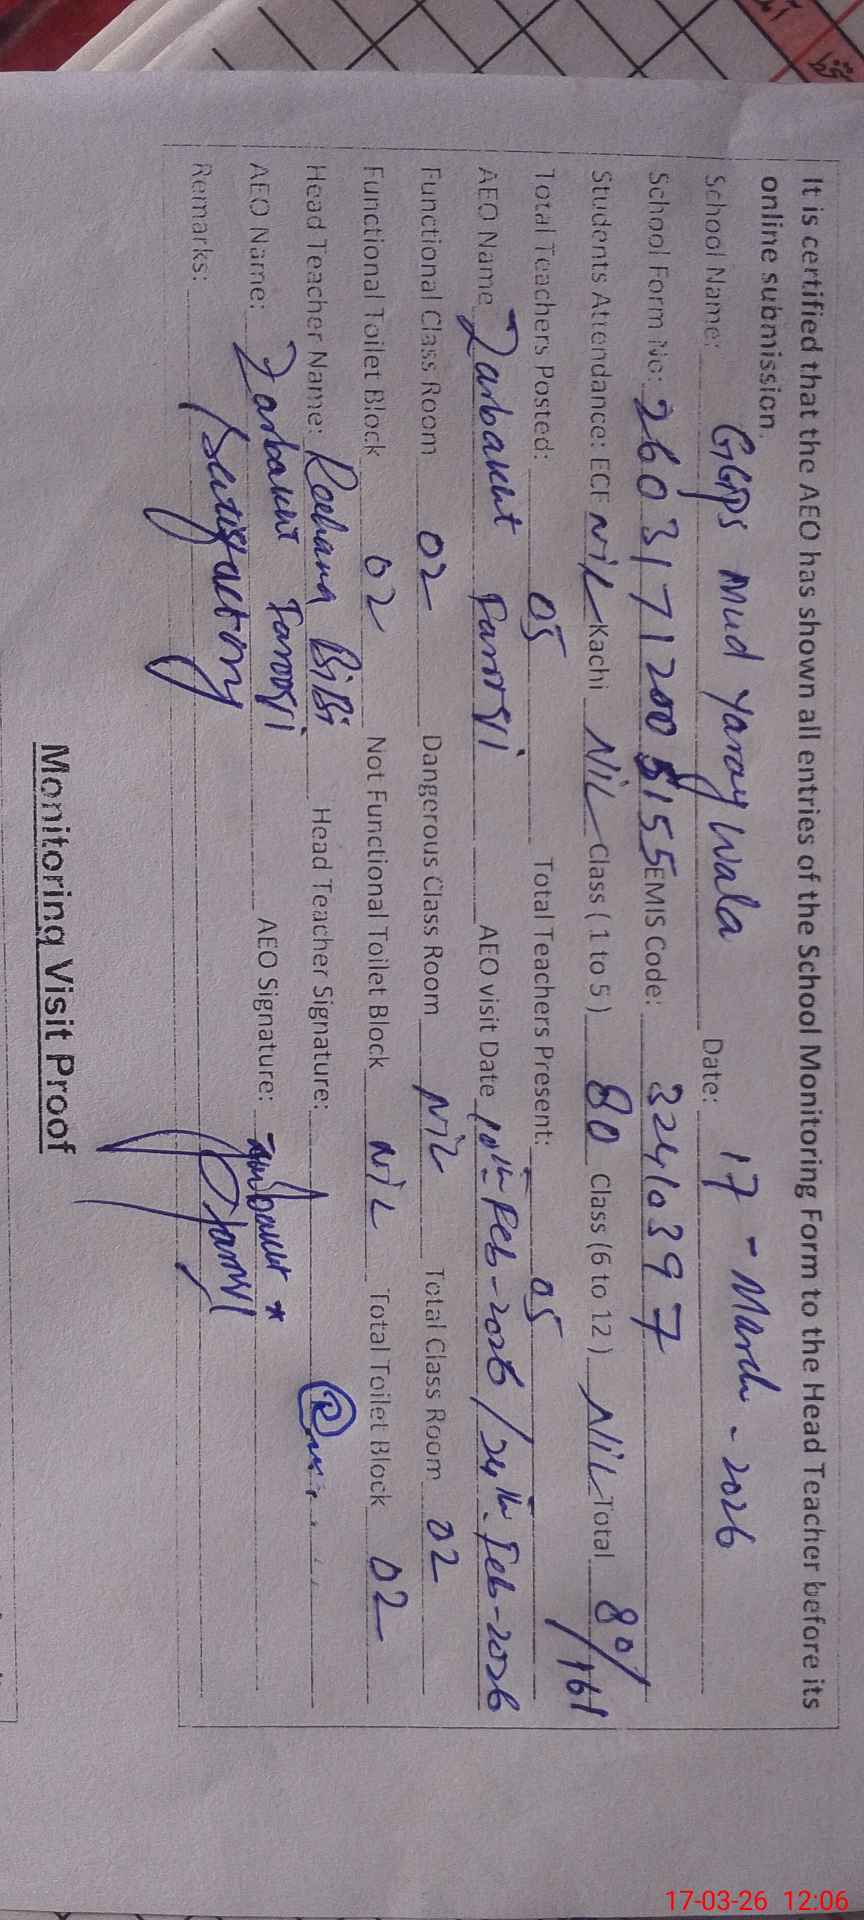 It is certified that the AEO has shown all entries of the School Monitoring Form to the Head Teacher before its
online submission.
School Name: GGPS Mud Yaray Wala Date: 17 - March - 2026
School Form No: 2603171200 5155 EMIS Code: 32410397
Students Attendance: ECE NiL Kachi NiL Class ( 1 to 5 ) 80 Class (6 to 12 ) NiL Total 80/161
Total Teachers Posted: 05 Total Teachers Present: 05
AEO Name Zarbakht Farooqi AEO visit Date 10th Feb-2026 / 24th Feb-2026
Functional Class Room 02 Dangerous Class Room NiL Total Class Room 02
Functional Toilet Block 02 Not Functional Toilet Block NiL Total Toilet Block 02
Head Teacher Name: Rehana BiBi Head Teacher Signature:
AEO Name: Zarbakht Farooqi AEO Signature: Zarbakht Farooqi
Remarks: Satisfactory
Monitoring Visit Proof
17-03-26 12:06